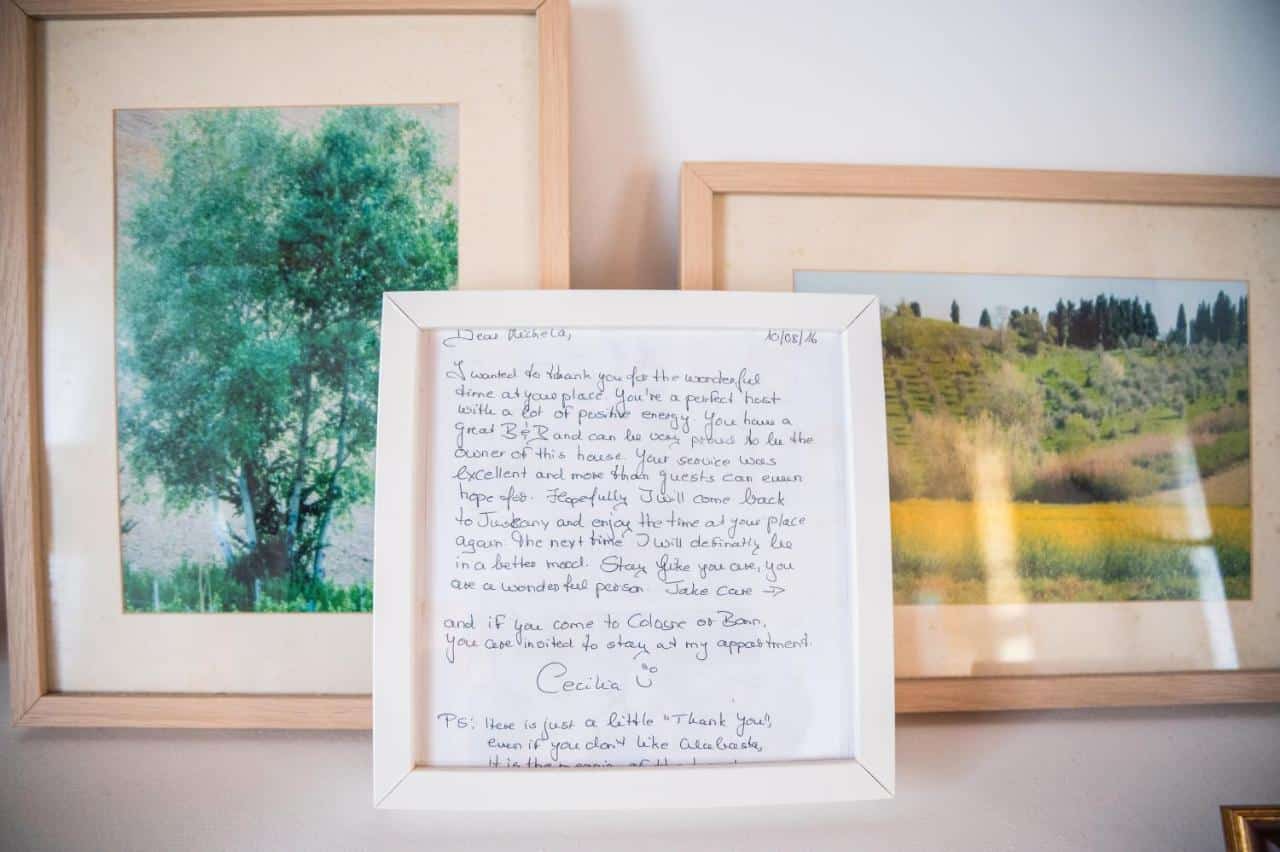 Dear Michela, 10/08/16
I wanted to thank you for the wonderful
time at your place. You're a perfect host
with a lot of positive energy. You have a
great B&B and can be very proud to be the
owner of this house. Your service was
excellent and more than guests can even
hope for. Hopefully I will come back
to Tuscany and enjoy the time at your place
again. The next time I will definatly be
in a better mood. Stay like you are, you
are a wonderful person. Take care →
and if you come to Cologne or Bonn,
you are invited to stay at my appartment.
Cecilia
PS: Here is just a little "Thank you",
even if you don't like Alabaster,
it is the of the